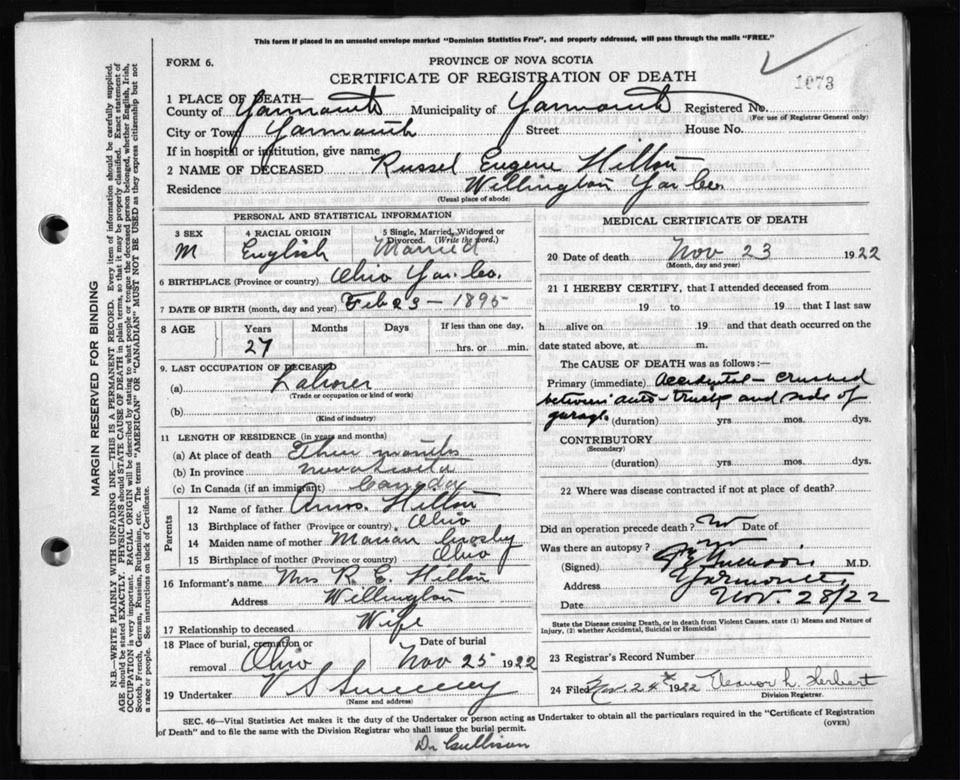 This form if placed in an unsealed envelope marked "Dominion Statistics Free", and properly addressed, will pass through the mails "FREE."
FORM 6.
PROVINCE OF NOVA SCOTIA
CERTIFICATE OF REGISTRATION OF DEATH
1073
1 PLACE OF DEATH—
County of Yarmouth Municipality of Yarmouth Registered No.
(For use of Registrar General only)
City or Town Yarmouth Street House No.
If in hospital or institution, give name
2 NAME OF DECEASED Russel Eugene Hilton
Residence Wellington Yar Co.
(Usual place of abode)
PERSONAL AND STATISTICAL INFORMATION
3 SEX 4 RACIAL ORIGIN 5 Single, Married, Widowed or Divorced. (Write the word.)
M English Married
6 BIRTHPLACE (Province or country) Ohio Yar. Co.
7 DATE OF BIRTH (month, day and year) Feb 23 – 1895
8 AGE Years Months Days If less than one day,
27 hrs. or min.
9. LAST OCCUPATION OF DECEASED
(a) Laborer
(Trade or occupation or kind of work)
(b)
(Kind of industry)
11 LENGTH OF RESIDENCE (in years and months)
(a) At place of death months
(b) In province Nova Scotia
(c) In Canada (if an immigrant) Canada
Parents
12 Name of father Amos. Hilton
13 Birthplace of father (Province or country) Ohio
14 Maiden name of mother Marian Crosby
15 Birthplace of mother (Province or country) Ohio
16 Informant's name Mrs R. E. Hilton
Address Wellington
17 Relationship to deceased Wife
18 Place of burial, cremation or removal Ohio Date of burial Nov 25 1922
19 Undertaker V S Sweeney
(Name and address)
MEDICAL CERTIFICATE OF DEATH
20 Date of death Nov 23 1922
(Month, day and year)
21 I HEREBY CERTIFY, that I attended deceased from
19 to 19 that I last saw
h alive on 19 and that death occurred on the
date stated above, at m.
The CAUSE OF DEATH was as follows:—
Primary (immediate) Accidental – crushed
between auto-truck and side of
garage. (duration) yrs mos. dys.
CONTRIBUTORY
(Secondary)
(duration) yrs mos. dys.
22 Where was disease contracted if not at place of death?
Did an operation precede death? no Date of
Was there an autopsy? no
(Signed) M.D.
Address Yarmouth,
Date Nov. 28/22
State the Disease causing Death, or in death from Violent Causes, state (1) Means and Nature of
Injury, (2) whether Accidental, Suicidal or Homicidal
23 Registrar's Record Number
24 Filed Nov. 24th 1922 Eleanor L. Herbert
Division Registrar.
SEC. 46—Vital Statistics Act makes it the duty of the Undertaker or person acting as Undertaker to obtain all the particulars required in the "Certificate of Registration
of Death" and to file the same with the Division Registrar who shall issue the burial permit.
(OVER)
Dr Cullison
MARGIN RESERVED FOR BINDING
N.B.—WRITE PLAINLY WITH UNFADING INK—THIS IS A PERMANENT RECORD. Every item of information should be carefully supplied.
AGE should be stated EXACTLY. PHYSICIANS should STATE CAUSE OF DEATH in plain terms, so that it may be properly classified. Exact statement of
OCCUPATION is very important. RACIAL ORIGIN will be described by stating to what people or tongue the deceased person belonged, whether English, Irish,
Scotch, French, German, Russian, Ruthenian, etc. The terms "AMERICAN" OR "CANADIAN" MUST NOT BE USED as they express citizenship but not
a race or people. See instructions on back of Certificate.